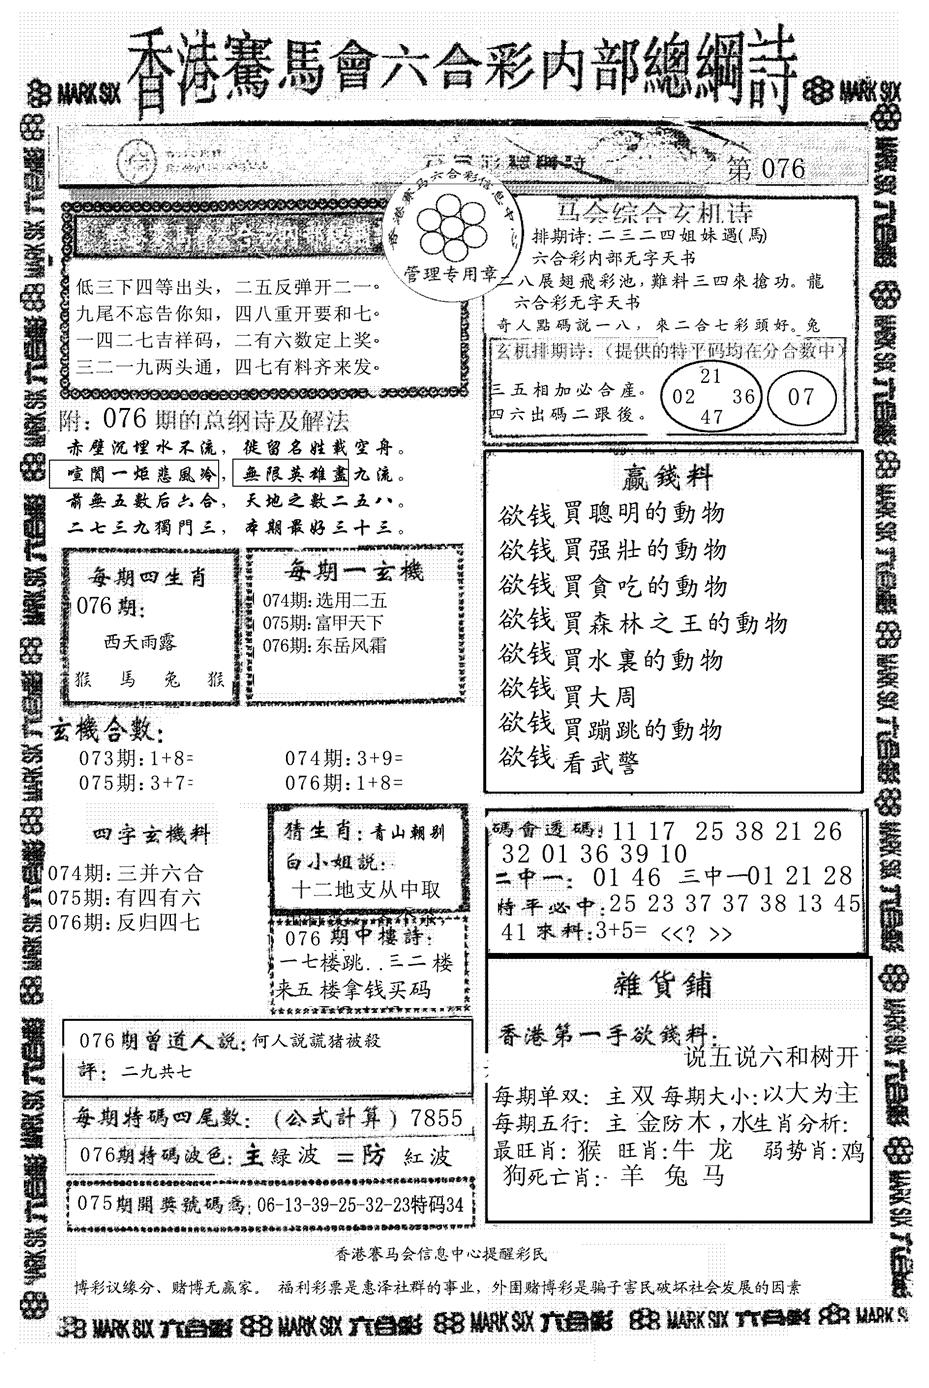 香港賽馬會六合彩内部總綱詩
MARK SIX
MARK SIX
第 076
香港赛马六合彩信息中
管理专用章
低三下四等出头，二五反弹开二一。
九尾不忘告你知，四八重开要和七。
一四二七吉祥码，二有六数定上奖。
三二一九两头通，四七有料齐来发。
附：076期的总纲诗及解法
赤壁沉埋水不流，徙留名姓載空舟。
喧闐一炬悲風冷，無限英雄盡九流。
前無五數后六合，天地之數二五八。
二七三九獨門三，本期最好三十三。
每期四生肖
076期：
西天雨露
猴 馬 兔 猴
每期一玄機
074期:选用二五
075期:富甲天下
076期:东岳风霜
玄機合數：
073期:1+8=
074期:3+9=
075期:3+7=
076期:1+8=
四字玄機料
074期:三并六合
075期:有四有六
076期:反归四七
猜生肖:青山朝别
白小姐説:
十二地支从中取
076期中樓詩:
一七楼跳..三二楼
来五楼拿钱买码
076期曾道人説:何人説謊猪被殺
評: 二九共七
每期特碼四尾數:(公式計算)7855
076期特碼波色:主綠波 =防 紅波
075期開獎號碼爲:06-13-39-25-32-23特码34
马会综合玄机诗
排期诗:二三二四姐妹遇(馬)
六合彩内部无字天书
二八展翅飛彩池,難料三四來搶功。龍
六合彩无字天书
奇人點碼説一八，來二合七彩頭好。兔
玄机排期诗:(提供的特平码均在分合数中)
三五相加必合産。
四六出碼二跟後。
21
02 36
47
07
赢錢料
欲钱買聰明的動物
欲钱買强壯的動物
欲钱買貪吃的動物
欲钱買森林之王的動物
欲钱買水裏的動物
欲钱買大周
欲钱買蹦跳的動物
欲钱看武警
碼會透碼:11 17 25 38 21 26
32 01 36 39 10
二中一: 01 46 三中一01 21 28
特平必中:25 23 37 37 38 13 45
41 來料:3+5= <<? >>
雜貨鋪
香港第一手欲錢料:
说五说六和树开
每期单双: 主双每期大小:以大为主
每期五行: 主 金防木,水生肖分析:
最旺肖: 猴 旺肖:牛 龙 弱势肖:鸡
狗死亡肖: 羊 兔 马
香港賽马会信息中心提醒彩民
博彩议缘分、赌博无赢家。 福利彩票是惠泽社群的事业，外围赌博彩是骗子害民破坏社会发展的因素
MARK SIX 六合彩 MARK SIX 六合彩 MARK SIX 六合彩 MARK SIX 六合彩 MARK SIX